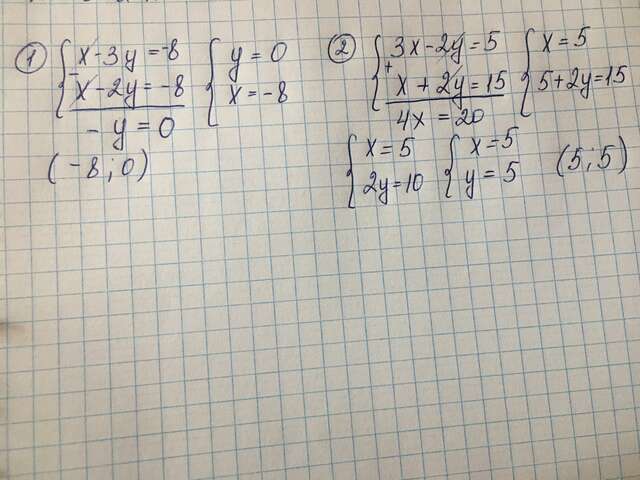 ① { x - 3y = -8
- x - 2y = -8
- y = 0
{ y = 0
x = -8
(-8; 0)
② { 3x - 2y = 5
+ x + 2y = 15
4x = 20
{ x = 5
5 + 2y = 15
{ x = 5
2y = 10
{ x = 5
y = 5
(5; 5)